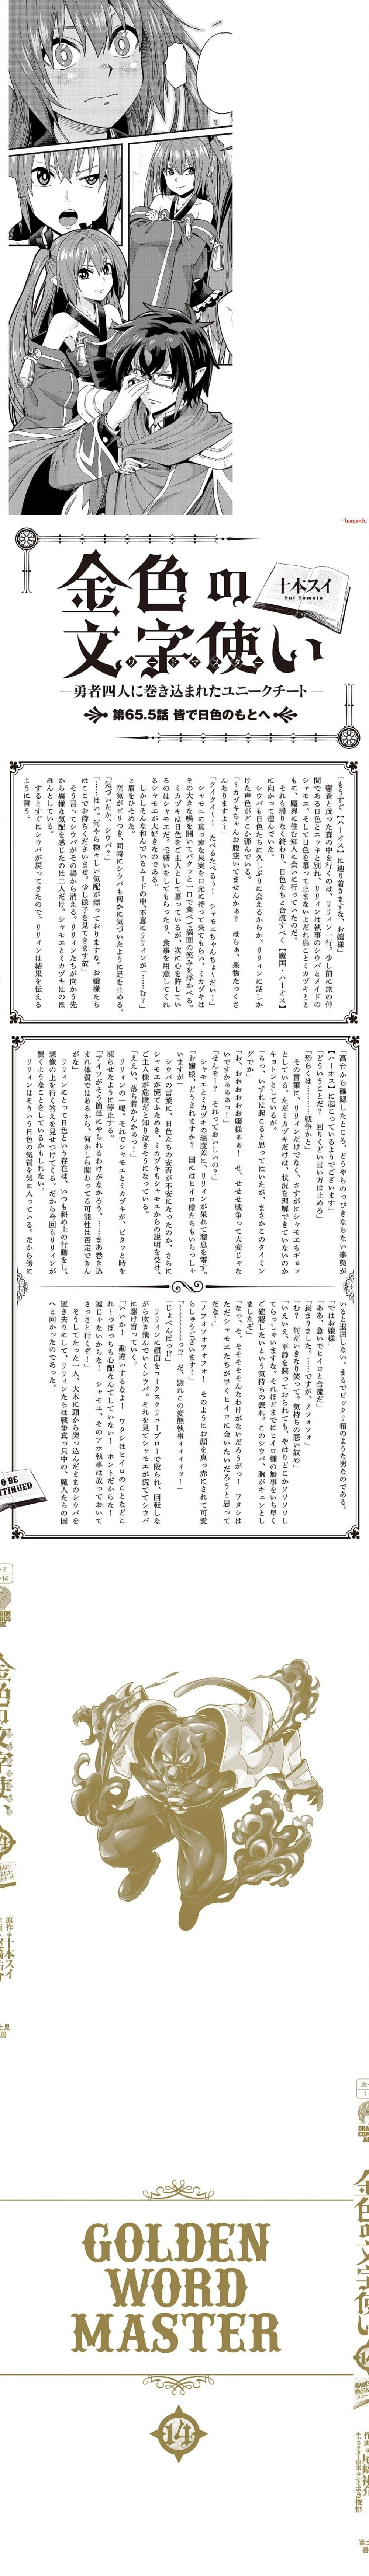 -Taladanfu
金色の
文字使い
ワードマスター
十本スイ
Sui Tomoto
―勇者四人に巻き込まれたユニークチート―
第65.5話 皆で日色のもとへ
「もうすぐ【ハーオス】に辿り着きますな、お嬢様」
鬱蒼と茂った森の中を行くのは、リリィン一行。少し前に旅の仲
間である日色とニッキと別れ、リリィンは執事のシウバとメイドの
シャモエ、そして日色を慕って止まないよだれ鳥ことミカヅキとと
もに、魔界に住む知人へ会いに行っていたのだ。
それも滞りなく終わり、日色たちと合流すべく【魔国・ハーオス】
に向かって進んでいた。
シウバも日色たちに久しぶりに会えるからか、リリィンに話しか
けた声色がどこか弾んでいる。
「ミカヅキちゃんお腹空いてませんかぁ? ほらぁ、果物たっくさ
んありますよぉ」
「クイタイ～! たべるたべるぅ! シャモエちゃんちょ～だい!」
シャモエに真っ赤な果実を口元に持って来てもらい、ミカヅキは
その大きな嘴を開いてパクッと一口で食べて満面の笑みを浮かべる。
ミカヅキは日色をご主人として慕っているが、次に心を許してい
るのはシャモエだ。毛繕いをしてもらったり、食事を用意してくれ
るシャモエが大好きなのである。
しかしそんな和んでいるムードの中、不意にリリィンが「……む?」
と眉をひそめた。
空気がピリつき、同時にシウバも何かに気づいたように足を止める。
「気づいたか、シウバ?」
「……はい。何やら物々しい気配が漂っておりますな。お嬢様たち
はここでお待ちくださいませ。少し様子を見てきます故」
そう言ってシウバがその場から消える。リリィンたちが向かう先
から異様な気配を感じたのは二人だけ。シャモエとミカヅキはのほ
ほんとしている。
するとすぐにシウバが戻ってきたので、リリィンは結果を伝える
ように言う。
「高台から確認したところ、どうやらのっぴきならない事態が
【ハーオス】に起こっているようでございます」
「どういうことだ? 回りくどい言い方は止めろ」
「恐らくは……戦争かと」
その言葉に、リリィンだけでなく、さすがにシャモエもギョッ
としている。ただミカヅキだけは、状況を理解できていないのか
キョトンとしているが。
「ちっ、いずれは起こると思ってはいたが、まさかこのタイミン
グでか」
「お、おおおおおお嬢様ぁぁ! せ、せせせ戦争って大変じゃな
いですかぁぁぁっ!」
「せんそー? それっておいしいの?」
シャモエとミカヅキの温度差に、リリィンが呆れて溜息を零す。
「お嬢様、どうされますか? 国にはヒイロ様たちもいらっしゃ
いますが」
シウバの言葉に、日色たちの安否が不安になったのか、さらに
シャモエが慌てふためき、ミカヅキもシャモエからの説明を受け、
ご主人様が危険だと知り泣きそうになっている。
「ええい、落ち着かんかぁっ!」
リリィンの一喝。それでシャモエとミカヅキが、ピタッと時を
凍らせたように停止する。
「アイツがそう簡単にやられるわけがなかろう。……まあ巻き込
まれ体質ではあるから、何かしら関わってる可能性は否定できん
がな」
リリィンにとって日色という存在は、いつも斜め上の行動をし、
想像の上を行く答えを見せつけてくる。だから今回もリリィンが
驚くようなことをしているかもしれない。
リリィンはそういう日色の気質を気に入っている。だから傍に
いると退屈しない。まるでビックリ箱のような男なのである。
「ではお嬢様」
「ああ、急いでヒイロと合流だ」
「畏まりました。……ですが、ノフォフォフォ」
「む? 何だいきなり笑って。気持ちの悪い奴め」
「いえいえ、平静を装っておられても、やはりどこかソワソワし
てらっしゃいますな。それほどまでにヒイロ様の無事をいち早く
ご確認したいという気持ちの表れ。このシウバ、胸がキュンとし
ましたぞ」
「なっ、そ、そそそそそんなわけがないだろうがっ! ワタシは
ただシャモエたちが早くヒイロに会いたいだろうと思って
だな!」
「ノフォフォフォフォ! そのようにお顔を真っ赤にされて可愛
らしゅうございます!」
「~~~っ!? だ、黙れこの変態執事ィィィィッ!」
「じょぺんぱっ!?」
リリィンに顔面をコークスクリューブローで殴られ、回転しな
がら吹き飛んでいくシウバ。それを見てシャモエが慌ててシウバ
に駆け寄っていく。
「いいか! 勘違いするなよ! ワタシはヒイロのことなどこ
れっぽっちも心配なんてしていない! ホントだからな!
嘘じゃないからな! シャモエ、そのアホ執事は放っておいて
さっさと行くぞ!」
そうしてたった一人、大木に頭から突っ込んだままのシウバを
置き去りにして、リリィンたちは戦争真っ只中の、魔人たちの国
へと向かったのであった。
TO BE
CONTINUED
金色の文字使い
原作◆十本スイ
GOLDEN
WORD
MASTER
14
金色の文字使い
14